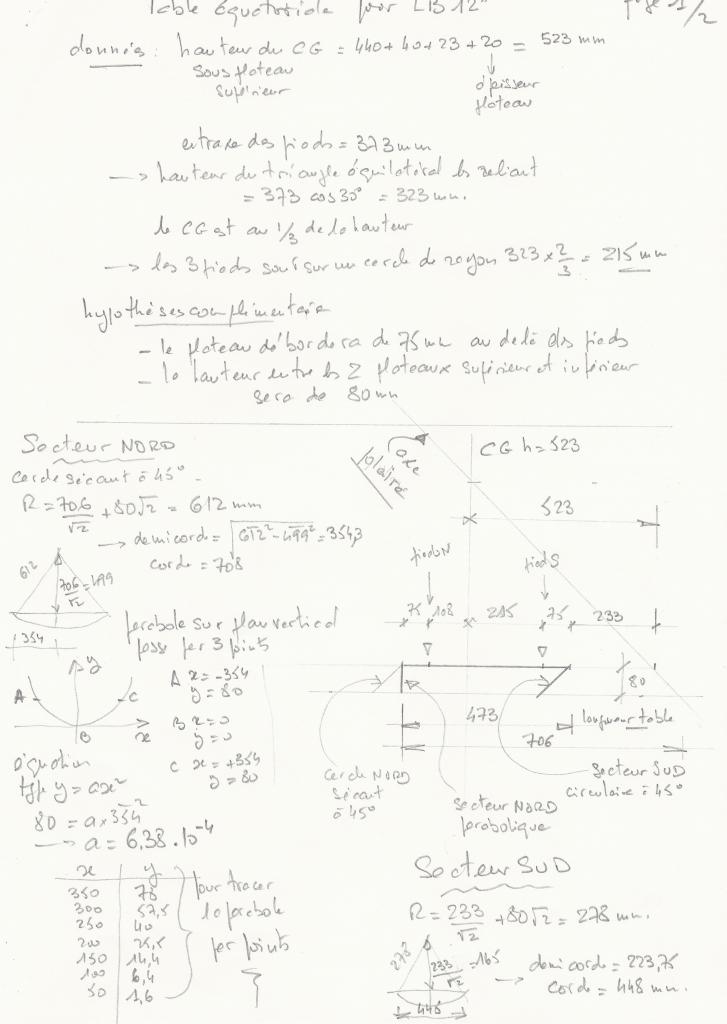 Table équatoriale pour LB 12" page 1/2
données : hauteur du CG = 440 + 40 + 23 + 20 = 523 mm
sous plateau
supérieur
épaisseur
plateau
entraxe des pieds = 373 mm
—> hauteur du triangle équilatéral les reliant
= 373 cos 30° = 323 mm.
le CG est au 1/3 de la hauteur
—> les 3 pieds sont sur un cercle de rayon 323 × 2/3 = 215 mm
hypothéses complémentaire
- le plateau débordera de 75 mm au delà des pieds
- la hauteur entre les 2 plateaux supérieur et inférieur
sera de 80 mm
Secteur NORD
cercle sécant à 45°
R = 706/√2 + 80√2 = 612 mm
—> demi corde = √(612² - 499²) = 354,3
corde = 708
612
706/√2 = 499
354
parabole sur plan vertical
passe par 3 points
A x = -354
y = 80
B x = 0
y = 0
C x = +354
y = 80
y
A
C
B
x
équation
type y = ax²
80 = a × 354²
—> a = 6,38 . 10⁻⁴
x y
350 78
300 57,5
250 40
200 25,5
150 14,4
100 6,4
50 1,6
pour tracer
la parabole
par points
axe
polaire
CG h = 523
523
pieds N
pied S
75 108 215 75 233
80
473
longueur table
706
cercle NORD
sécant
à 45°
secteur NORD
parabolique
secteur SUD
circulaire à 45°
Secteur SUD
R = 233/√2 + 80√2 = 278 mm.
278
233/√2 = 165
—> demi corde = 223,75
corde = 448 mm.